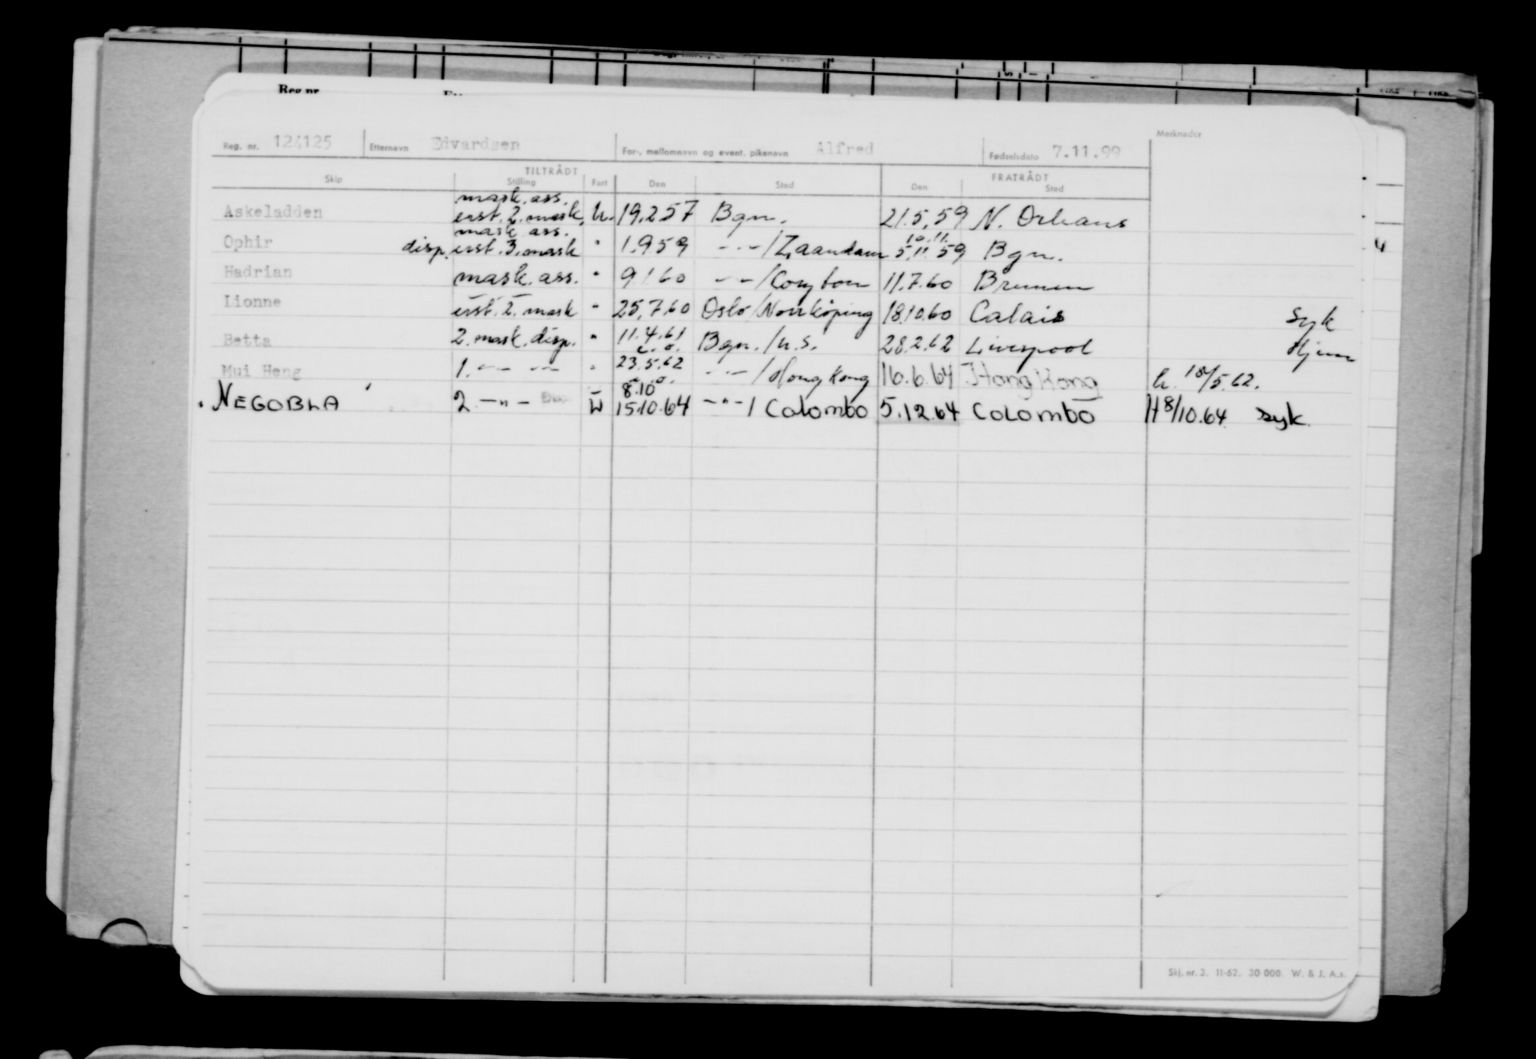 Reg. nr. 124125 Etternavn Edvardsen For-, mellomnavn og event. pikenavn Alfred Fødselsdato 7.11.99 Merknader
TILTRÅDT FRATRÅDT
Skip Stilling Fart Den Sted Den Sted
mask. ass.
Askeladden erst. 2. mask. u. 19.2.57 Bgn. 21.5.59 N. Orleans
mask. ass. 10.11.
Ophir disp. erst. 3. mask " 1.9.59 -"-/Zaandam 5.11.59 Bgn.
Hadrian mask. ass. " 9.1.60 -"-/ 11.7.60 Bremen
Lionne erst. 2. mask " 25.7.60 Oslo/Norrköping 18.10.60 Calais Syk
Betta 2. mask. disp. " 11.4.61 Bgn./u.s. 28.2.62 Liverpool Hjem
Mui Heng 1. -"- -"- " 23.5.62 -"-/Hong Kong 16.6.64 Hong Kong h. 18/5.62.
8.10
NEGOBLA 2. -"- U 15.10.64 -"-/ Colombo 5.12.64 COLOMBO H 8/10.64 syk.
Skj. nr. 2. 11-62. 30 000. W. & J. A.s.